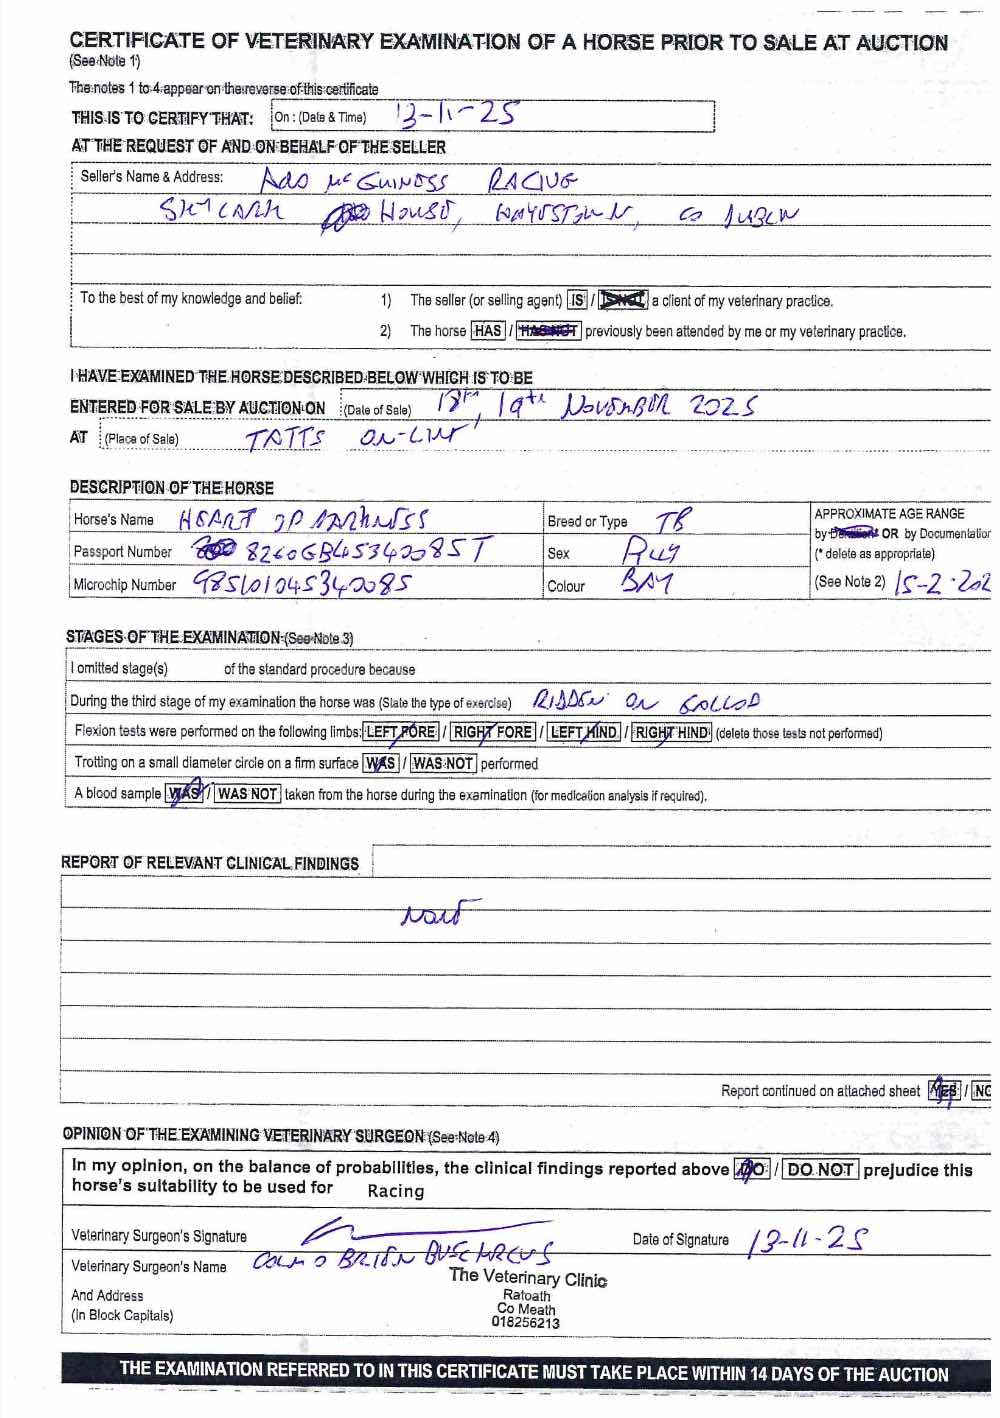 CERTIFICATE OF VETERINARY EXAMINATION OF A HORSE PRIOR TO SALE AT AUCTION
(See Note 1)
The notes 1 to 4 appear on the reverse of this certificate
THIS IS TO CERTIFY THAT: On : (Date & Time) 13-11-25
AT THE REQUEST OF AND ON BEHALF OF THE SELLER
Seller's Name & Address: ADO MC GUINESS RACING
HOUSE, HAYESTOWN, CO DUBLIN
To the best of my knowledge and belief: 1) The seller (or selling agent) IS / IS NOT a client of my veterinary practice.
2) The horse HAS / HAS NOT previously been attended by me or my veterinary practice.
I HAVE EXAMINED THE HORSE DESCRIBED BELOW WHICH IS TO BE
ENTERED FOR SALE BY AUCTION ON (Date of Sale) 18th, 19th NOVEMBER 2025
AT (Place of Sale) TATTS ON-LINE
DESCRIPTION OF THE HORSE
Horse's Name HEART OF DARKNESS Breed or Type TB APPROXIMATE AGE RANGE
by Dentition* OR by Documentation
Passport Number 8260GB45340085T Sex (* delete as appropriate)
Microchip Number 985101045340085 Colour BAY (See Note 2) 15-2-202
STAGES OF THE EXAMINATION (See Note 3)
I omitted stage(s) of the standard procedure because
During the third stage of my examination the horse was (State the type of exercise) RIDDEN ON GALLOP
Flexion tests were performed on the following limbs: LEFT FORE / RIGHT FORE / LEFT HIND / RIGHT HIND (delete those tests not performed)
Trotting on a small diameter circle on a firm surface WAS / WAS NOT performed
A blood sample WAS / WAS NOT taken from the horse during the examination (for medication analysis if required).
REPORT OF RELEVANT CLINICAL FINDINGS
NONE
Report continued on attached sheet YES / NO
OPINION OF THE EXAMINING VETERINARY SURGEON (See Note 4)
In my opinion, on the balance of probabilities, the clinical findings reported above DO / DO NOT prejudice this
horse's suitability to be used for Racing
Veterinary Surgeon's Signature Date of Signature 13-11-25
Veterinary Surgeon's Name COLM O BRIEN BVSC MRCVS
The Veterinary Clinic
And Address Ratoath
(In Block Capitals) Co Meath
018256213
THE EXAMINATION REFERRED TO IN THIS CERTIFICATE MUST TAKE PLACE WITHIN 14 DAYS OF THE AUCTION